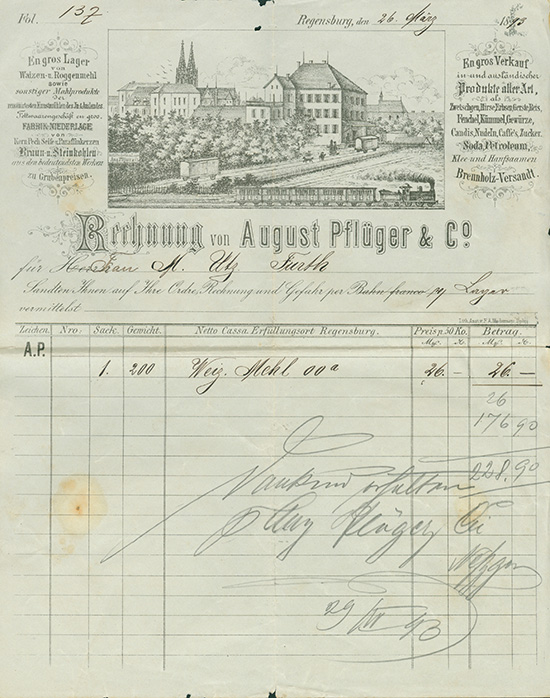 Fol. 137
Regensburg, den 26. März 1893
En gros Lager
von
Waizen- u. Roggenmehl
sowie
sonstiger Mahlprodukte
der
renommirtesten Kunstmühlen des In- & Auslandes
Fettwaarengeschäft en gros.
FABRIK-NIEDERLAGE
von
Kern-Pech-Seife & Paraffinkerzen
Braun- u. Steinkohlen
aus den bedeutendsten Werken
zu Grubenpreisen.
En gros Verkauf
in- und ausländischer
Produkte aller Art,
als
Zwetschgen, Hirse, Erbsen, Gerste, Reis,
Fenchel, Kümmel, Gewürze,
Candis, Nudeln, Caffe's, Zucker.
Soda, Petroleum,
Klee- und Hanfsaamen
Brennholz-Versandt.
Rechnung von August Pflüger & Co.
für Frau M. Utz Fürth
Sandten Ihnen auf Ihre Ordre, Rechnung und Gefahr per Bahn franco Lager
vermittelst
Zeichen. Nro. Sack. Gewicht. Netto Cassa. Erfüllungsort Regensburg. Preis p. 50 Ko. Betrag.
A.P.
1. 200 Weiz. Mehl 00a 26. — 26. —
26
176 90
228. 90
Dankend erhalten
Aug Pflüger Cie
29/III 93